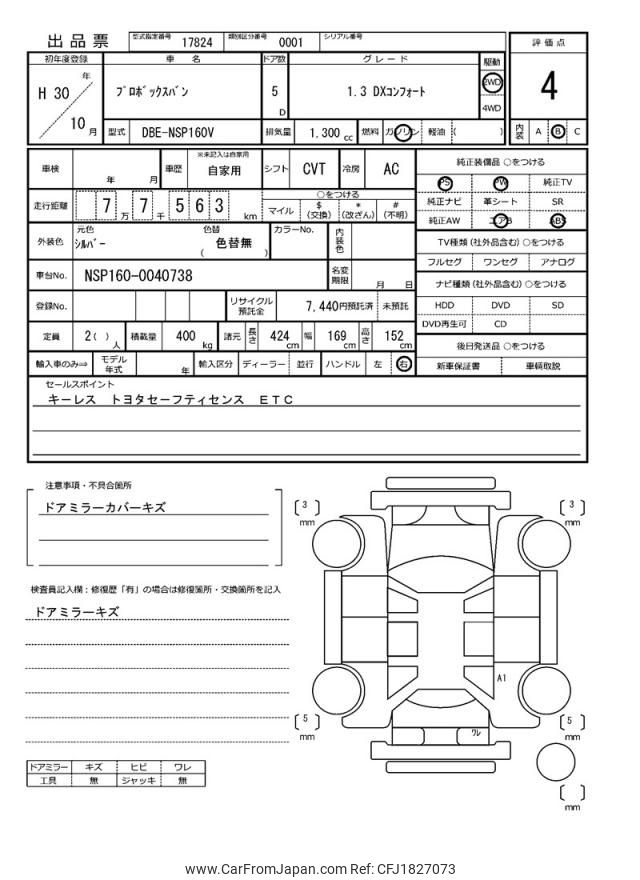 出品票 型式指定番号 17824 類別区分番号 0001 シリアル番号
評価点
4
内装 A B C
初年度登録 車名 ドア数 グレード 駆動
H 30 年 10 月
プロボックスバン 5 D 1.3 DXコンフォート 2WD 4WD
型式 DBE-NSP160V 排気量 1,300 cc 燃料 ガソリン 軽油 ( )
車検 年 月 車歴 ※未記入は自家用 自家用 シフト CVT 冷房 AC
走行距離 7 万 7 千 5 6 3 km
○をつける
マイル $ (交換) * (改ざん) # (不明)
外装色 元色 シルバー 色替 色替無 ( ) カラーNo. 内装色
車台No. NSP160-0040738 名変期限 月 日
登録No. リサイクル預託金 7,440円預託済 未預託
定員 2( ) 人 積載量 400 kg 諸元 長さ 424 cm 幅 169 cm 高さ 152 cm
輸入車のみ⇒ モデル年式 年 輸入区分 ディーラー 並行 ハンドル 左 右
純正装備品 ○をつける
PS PW 純正TV
純正ナビ 革シート SR
純正AW エアB ABS
TV種類 (社外品含む) ○をつける
フルセグ ワンセグ アナログ
ナビ種類 (社外品含む) ○をつける
HDD DVD SD
DVD再生可 CD
後日発送品 ○をつける
新車保証書 車輌取説
セールスポイント
キーレス トヨタセーフティセンス ETC
注意事項・不具合箇所
ドアミラーカバーキズ
検査員記入欄：修復歴「有」の場合は修復箇所・交換箇所を記入
ドアミラーキズ
ドアミラー キズ ヒビ ワレ
工具 無 ジャッキ 無
[3] mm
[3] mm
A1
[5] mm
ワレ
[5] mm
[ ] mm
www.CarFromJapan.com Ref: CFJ1827073